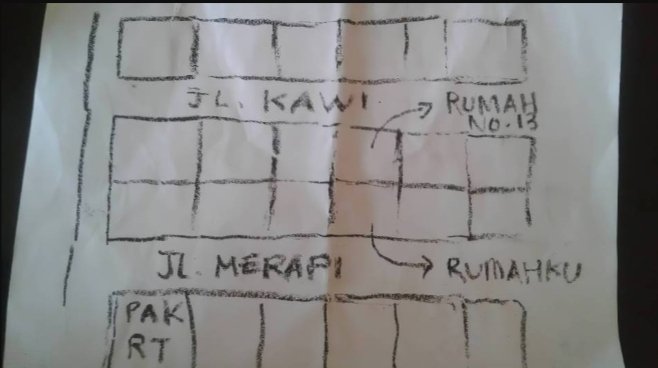 JL. KAWI
RUMAH
No.13
JL. MERAPI
RUMAHKU
PAK
RT